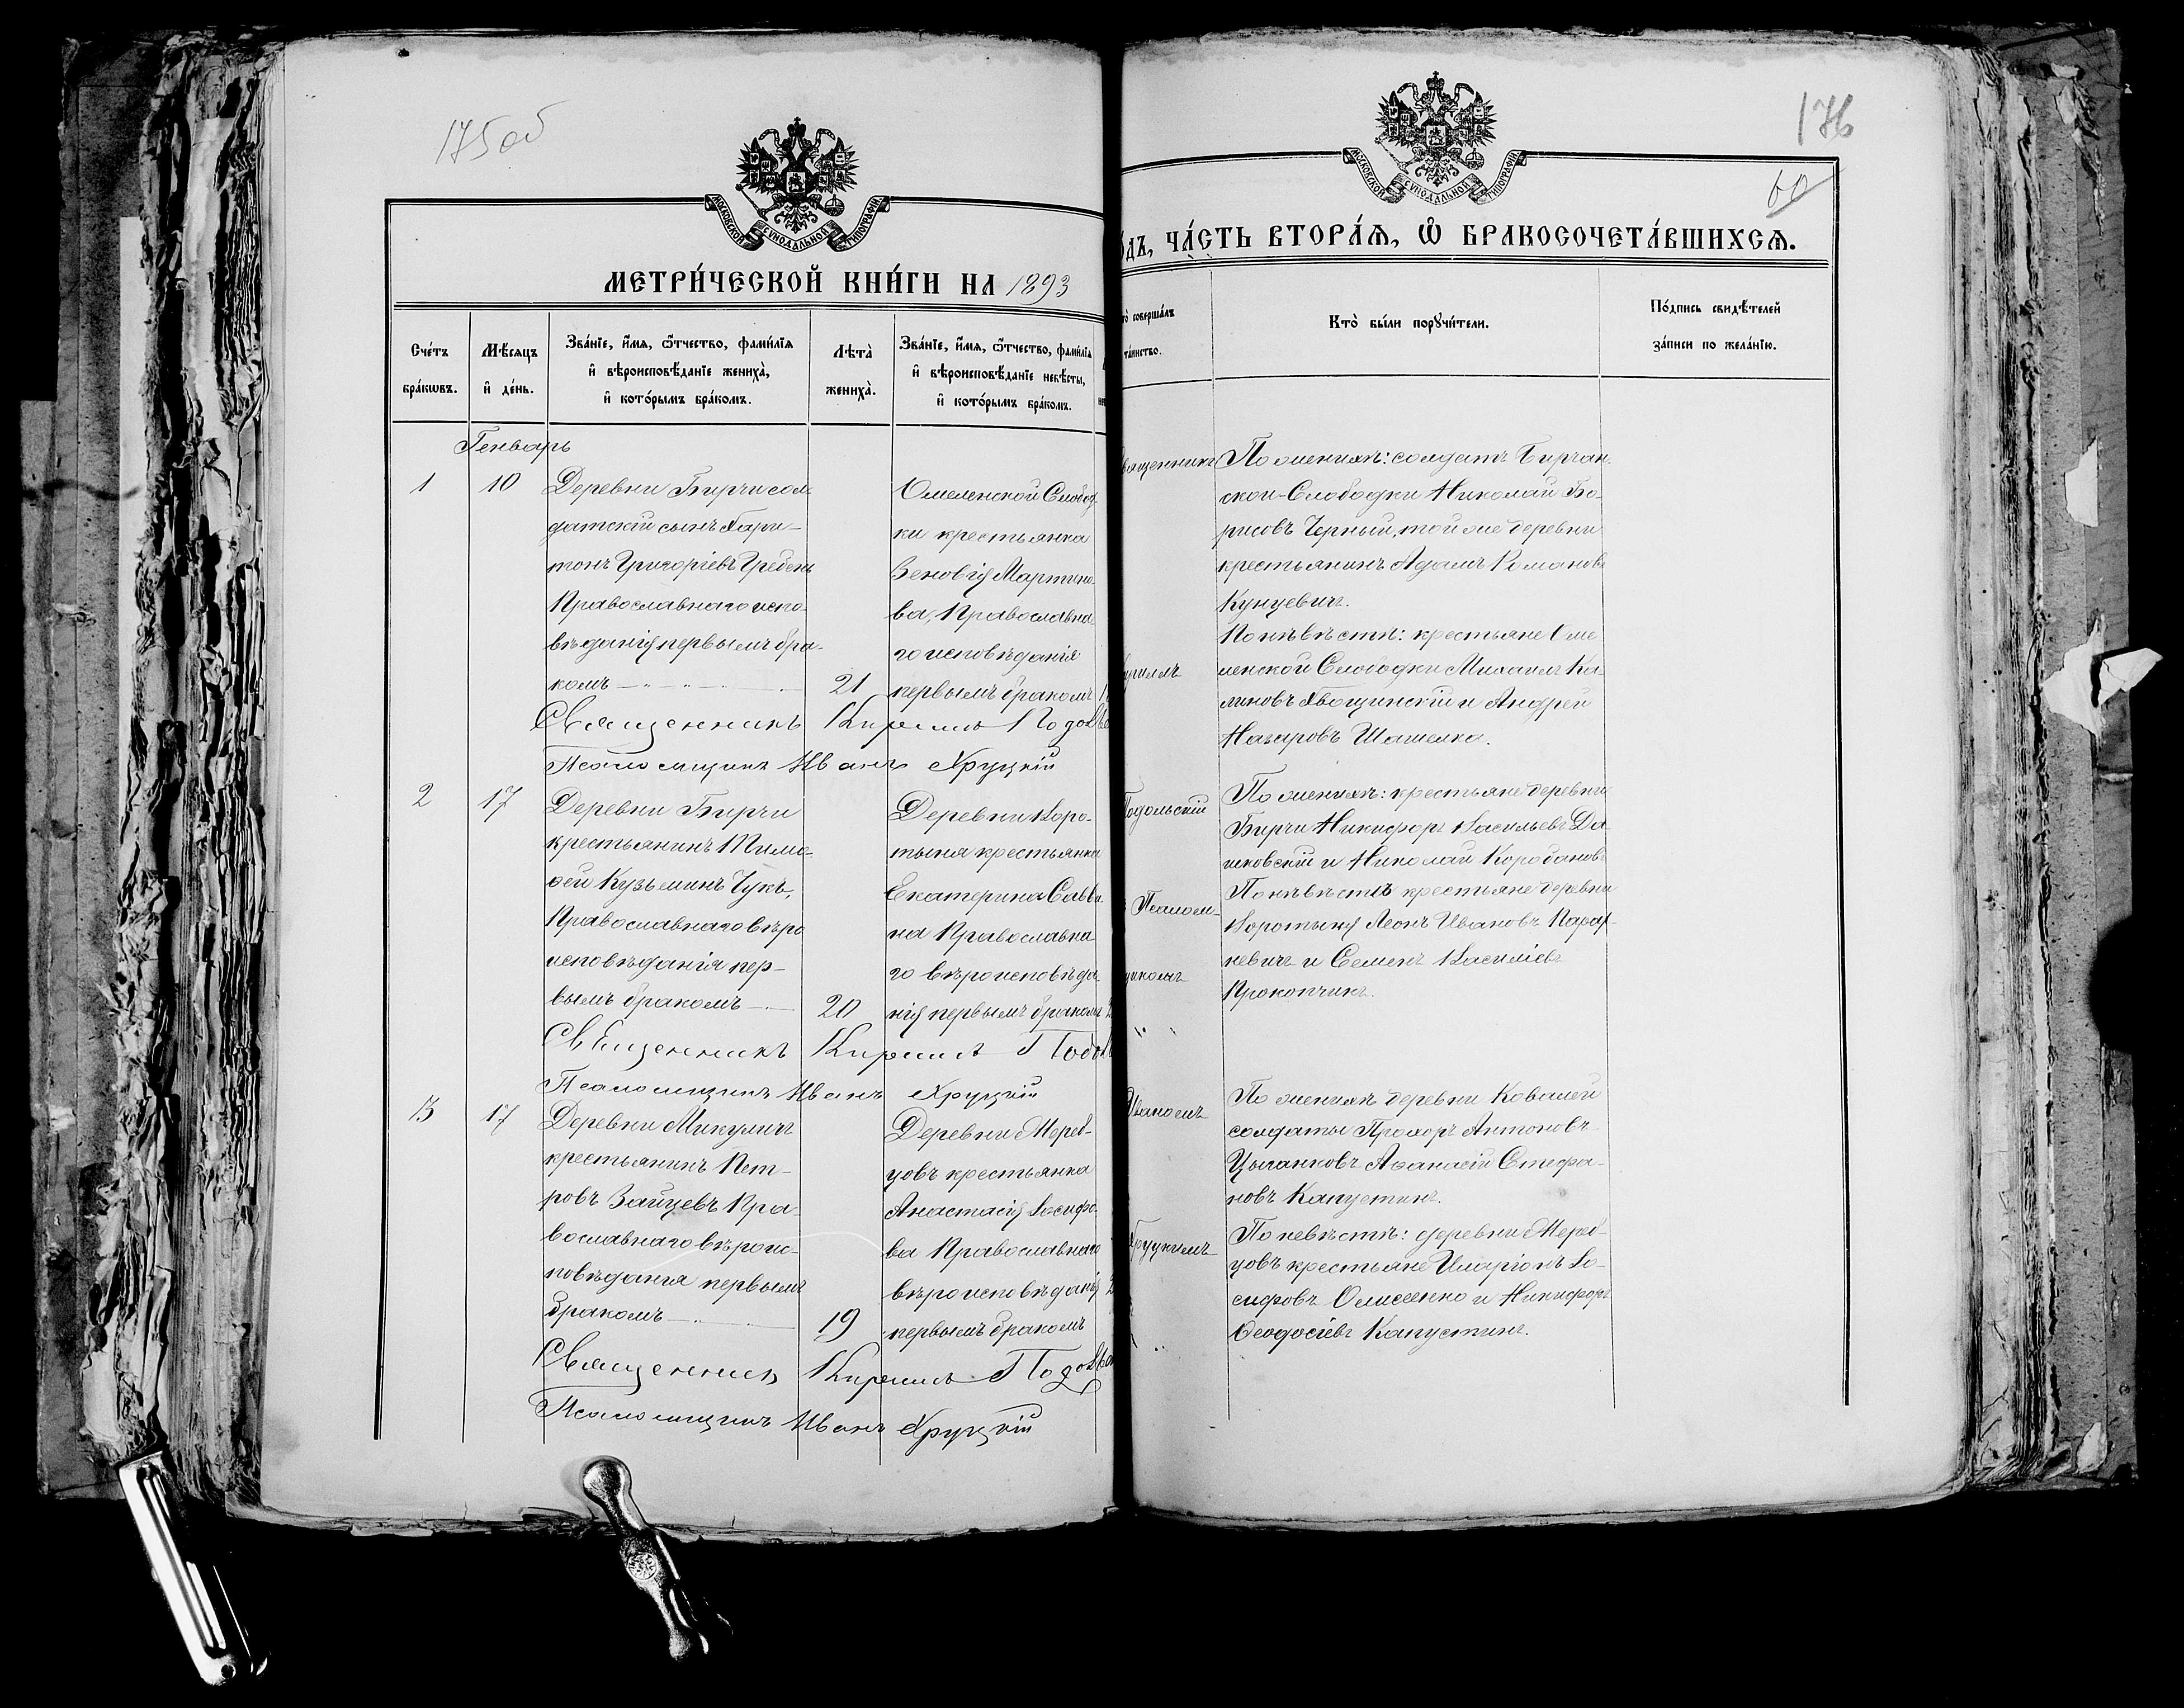 175 об
МОСКОВСКОЙ СѴНОДАЛЬНОЙ ТИПОГРАФІИ
МЕТРИ́ЧЕСКОЙ КНИ́ГИ НА 1893
Сче́тъ бра́кѡвъ.
Мѣ́сяцъ и҆ де́нь.
Зва́нїе, и҆́мя, ѻ҆́тчество, фами́лїя
и҆ вѣроисповѣ́данїе жениха̀,
и҆ кото́рымъ бра́комъ.
Лѣта̀ жениха̀.
Зва́нїе, и҆́мя, ѻ҆́тчество, фами́лїя
и҆ вѣроисповѣ́данїе невѣ́сты,
и҆ кото́рымъ бра́комъ.
Генварь
1
10
Деревни Бирчи сол-
датскій сынъ Хари-
тонъ Григоріевъ Гребень
Православнаго испо-
вѣданія первымъ бра-
комъ
21
Омеленской Слобод-
ки крестьянка
Зеновія Мартино-
ва, Православна-
го исповѣданія
первымъ бракомъ
Священникъ Кирилъ
Псаломщикъ Иванъ Хруцкій
2
17
Деревни Бирчи
крестьянинъ Тимо-
ѳей Кузьминъ Чукъ,
Православнаго вѣро
исповѣданія пер-
вымъ бракомъ
20
Деревни Воро-
тыня крестьянка
Екатерина Савви-
на Православна-
го вѣроисповѣда-
нія первымъ бракомъ
Священникъ Кирилъ
Псаломщикъ Иванъ Хруцкій
3
17
Деревни Микуличъ
крестьянинъ Пет-
ровъ Зайцевъ Пра-
вославнаго вѣроис-
повѣданія первымъ
бракомъ
19
Деревни Жерев-
цовъ крестьянка
Анастасія Іосифо-
ва Православнаго
вѣроисповѣданія
первымъ бракомъ
Священникъ Кирилъ
Псаломщикъ Иванъ Хруцкій
176
60
МОСКОВСКОЙ СѴНОДАЛЬНОЙ ТИПОГРАФІИ
ОДЪ, ЧА́СТЬ ВТОРА́Я, Ѽ БРАКОСОЧЕТА́ВШИХСЯ.
совершалъ
таинство.
Кто̀ бы́ли порꙋчи́тели.
По́дпись свидѣ́телей
за́писи по жела́нїю.
По женихѣ: солдатъ Бирчан-
ской-Слободки Николай Бо-
рисовъ Черный, той же деревни
крестьянинъ Адамъ Романовъ
Кунцевичъ.
По нѣвѣстѣ: крестьяне Оме
ленской Слободки Михаилъ Ка-
линовъ Хвощинскій и Андрей
Назаровъ Шашелка.
Подольскій
По женихѣ: крестьяне деревни
Бирчи Никифоръ Васильевъ Да-
шковскій и Николай Коробановъ
Псалом-
По нѣвѣстѣ крестьяне деревни
Воротыня Леонъ Ивановъ
невичъ и Семенъ Василіевъ
Прокопчикъ.
Иваномъ
По женихѣ деревни Ковалей
солдаты Прохоръ Антоновъ
Цыганковъ Аѳанасій Стефа-
новъ Капустинъ.
Хруцкимъ
По невѣстѣ: деревни Жерев-
цовъ крестьяне Иларіонъ Іо-
сифовъ и Никифоръ
Ѳеодосіевъ Капустинъ.